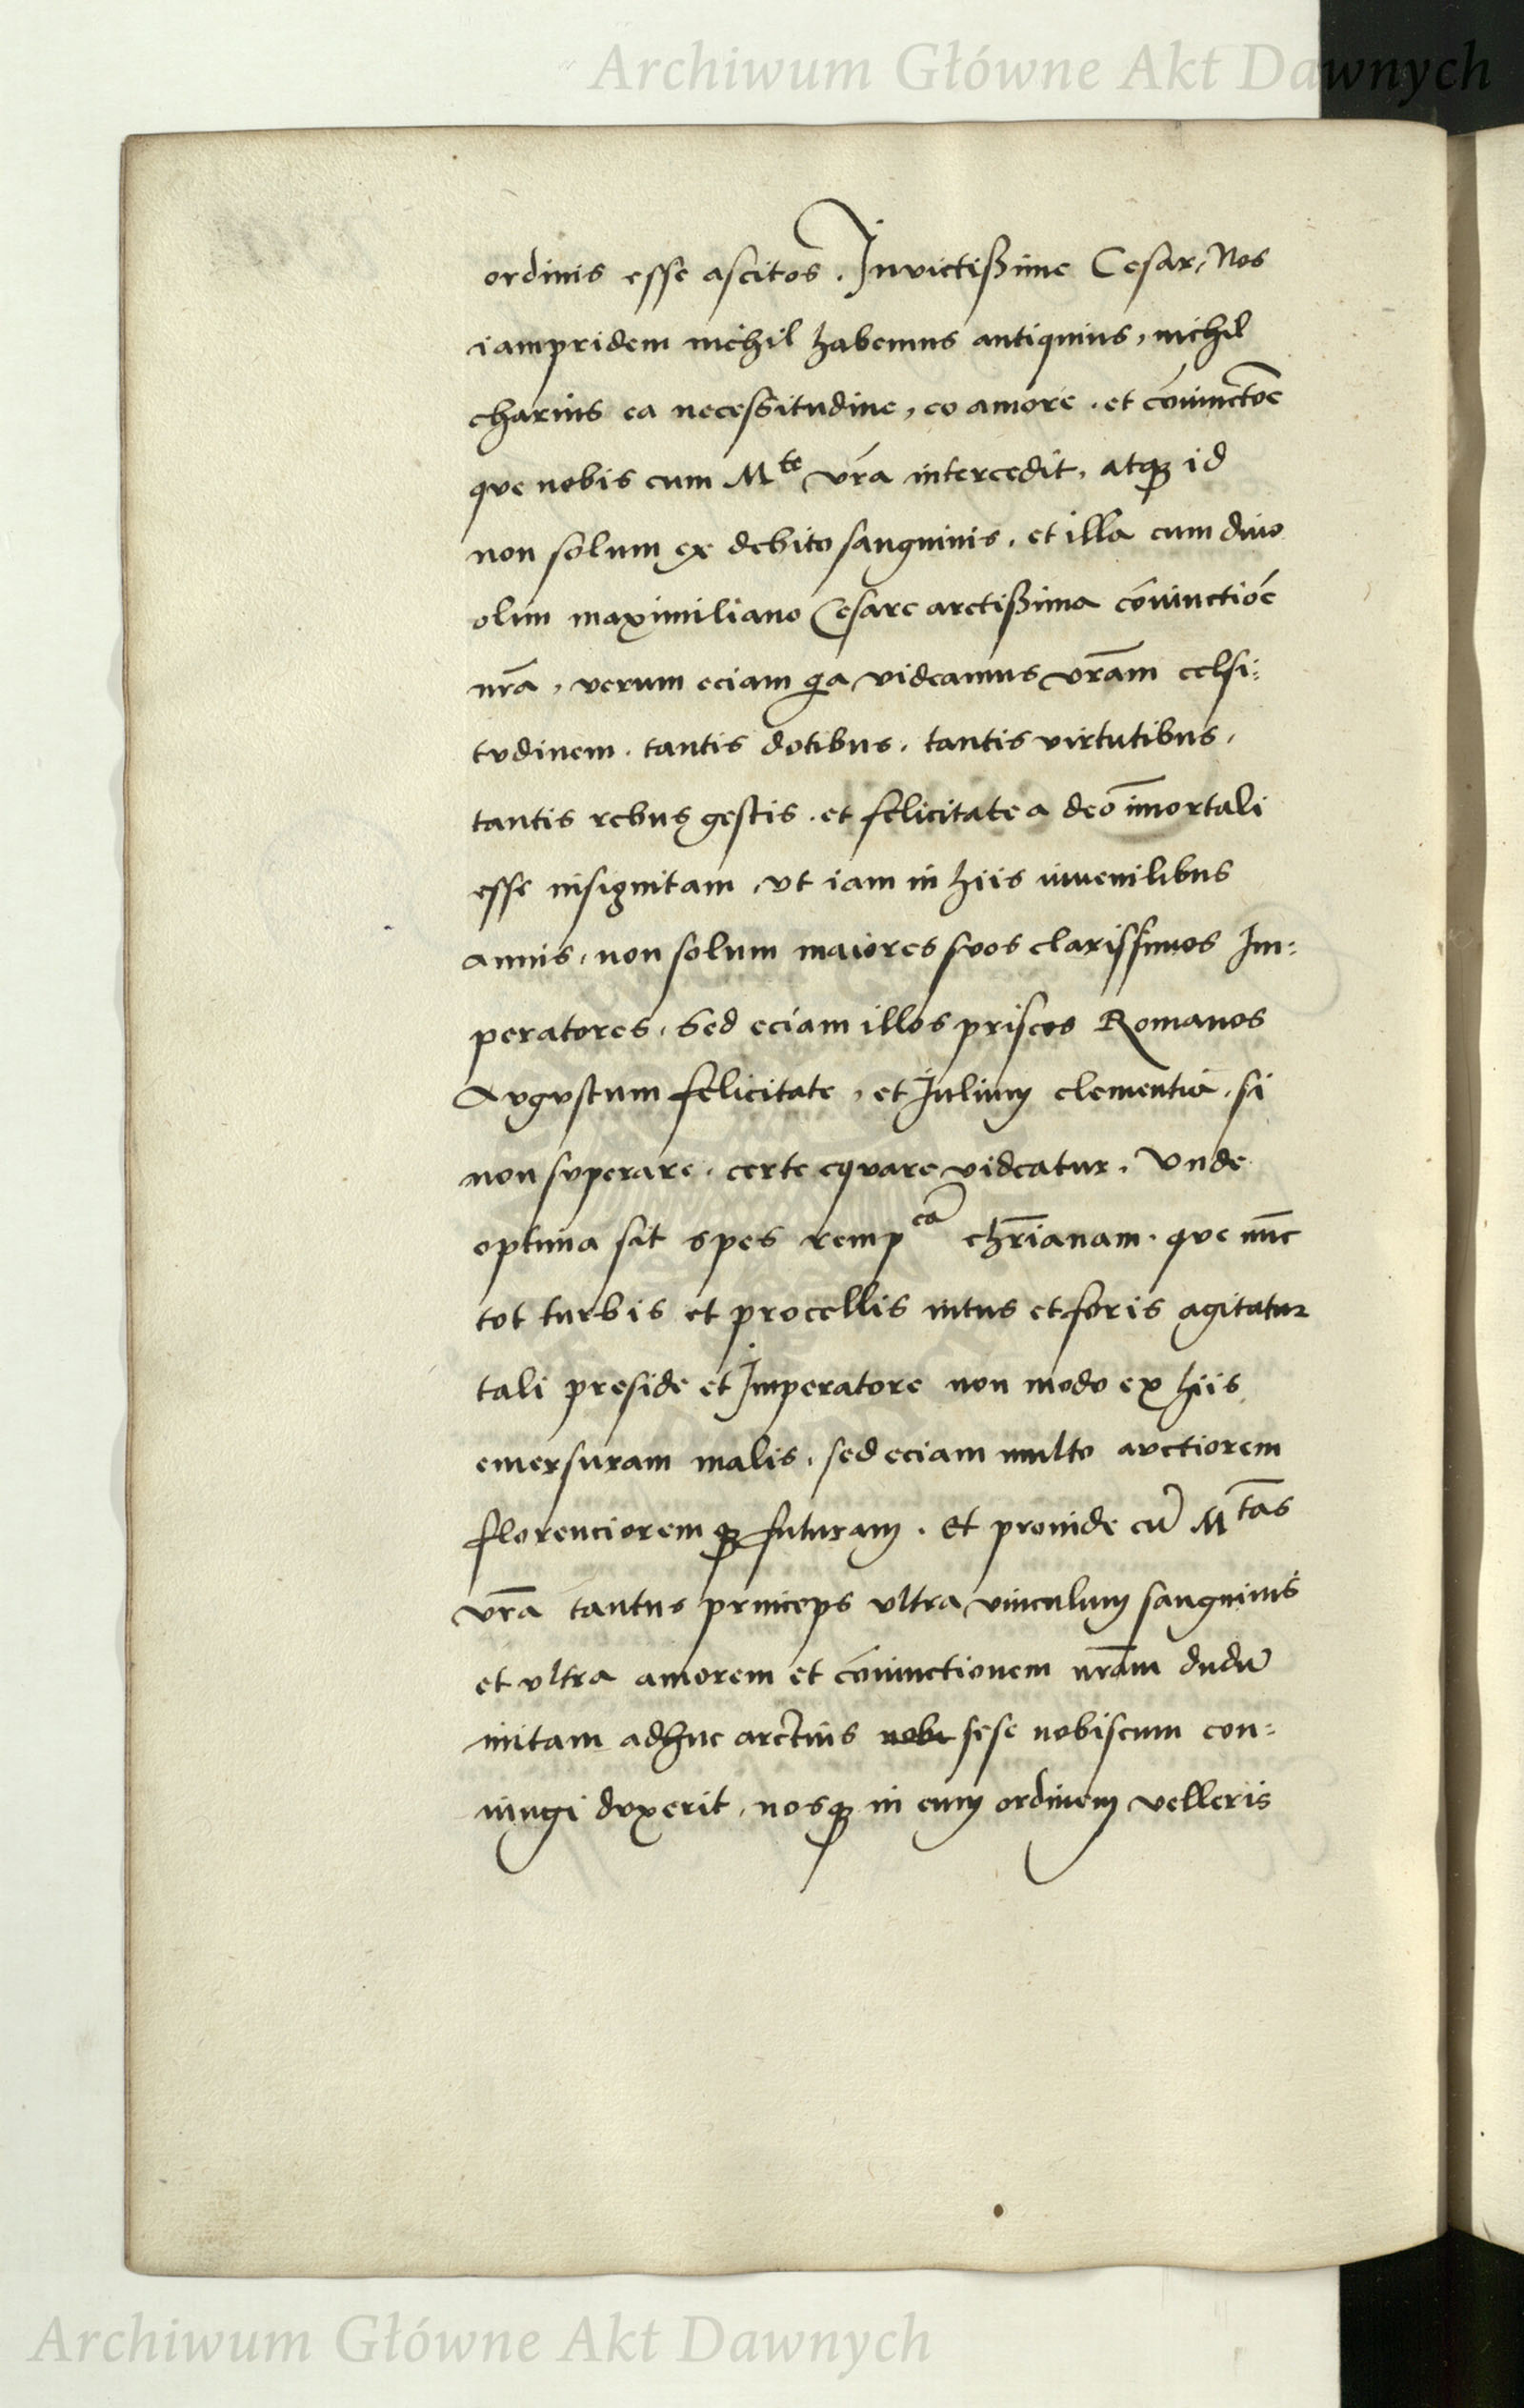 Archiwum Główne Akt Dawnych
ordinis esse ascitos. Invictißime Cesar, Nos
iampridem nichil habemus antiquius, nichil
charius ea necessitudine, eo amore. et cōiunctōe
que nobis cum M^te vrā intercedit, atqꝫ id
non solum ex debito sanguinis, et illa cum divo
olim maximiliano Cesare arctißima cōiunctiōe
nrā, verum eciam qa videamus vrām celsi:
tudinem. tantis dotibus. tantis virtutibus,
tantis rebus gestis. et felicitate a deo īmortali
esse insignitam, ut iam in hiis iuvenilibus
annis, non solum maiores suos clarissimos Im:
peratores, Sed eciam illos priscos Romanos
Augustum felicitate, et Iulium clementia, si
non superare, certe equare videatur. Unde
optima sit spes remp^cā chrīanam. que nūc
tot turbis et procellis intus et foris agitatur
tali preside et Imperatore non modo ex hiis
emersuram malis, sed eciam multo auctiorem
florenciorem qꝫ futuram. Et proinde cū M^tas
vrā tantus princeps ultra vinculum sanguinis
et ultra amorem et cōiunctionem nrām dudū
initam adhuc arctius nobi sese nobiscum con:
iungi duxerit, nosqꝫ in eum ordinem velleris
Archiwum Główne Akt Dawnych